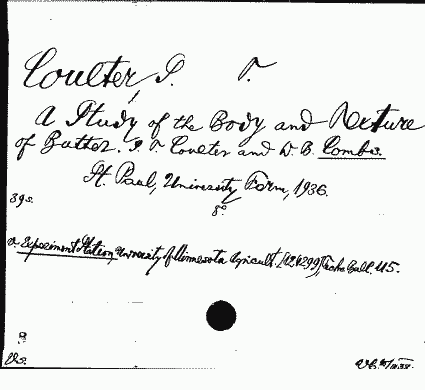 Coulter, S. T.
A Study of the Body and Texture
of Butter. S. T. Coulter and W. B. Combs.
St. Paul, University Farm, 1936.
8º
39s.
v. Experiment Station, University of Minnesota Agricult. Techn. Bull. 115.